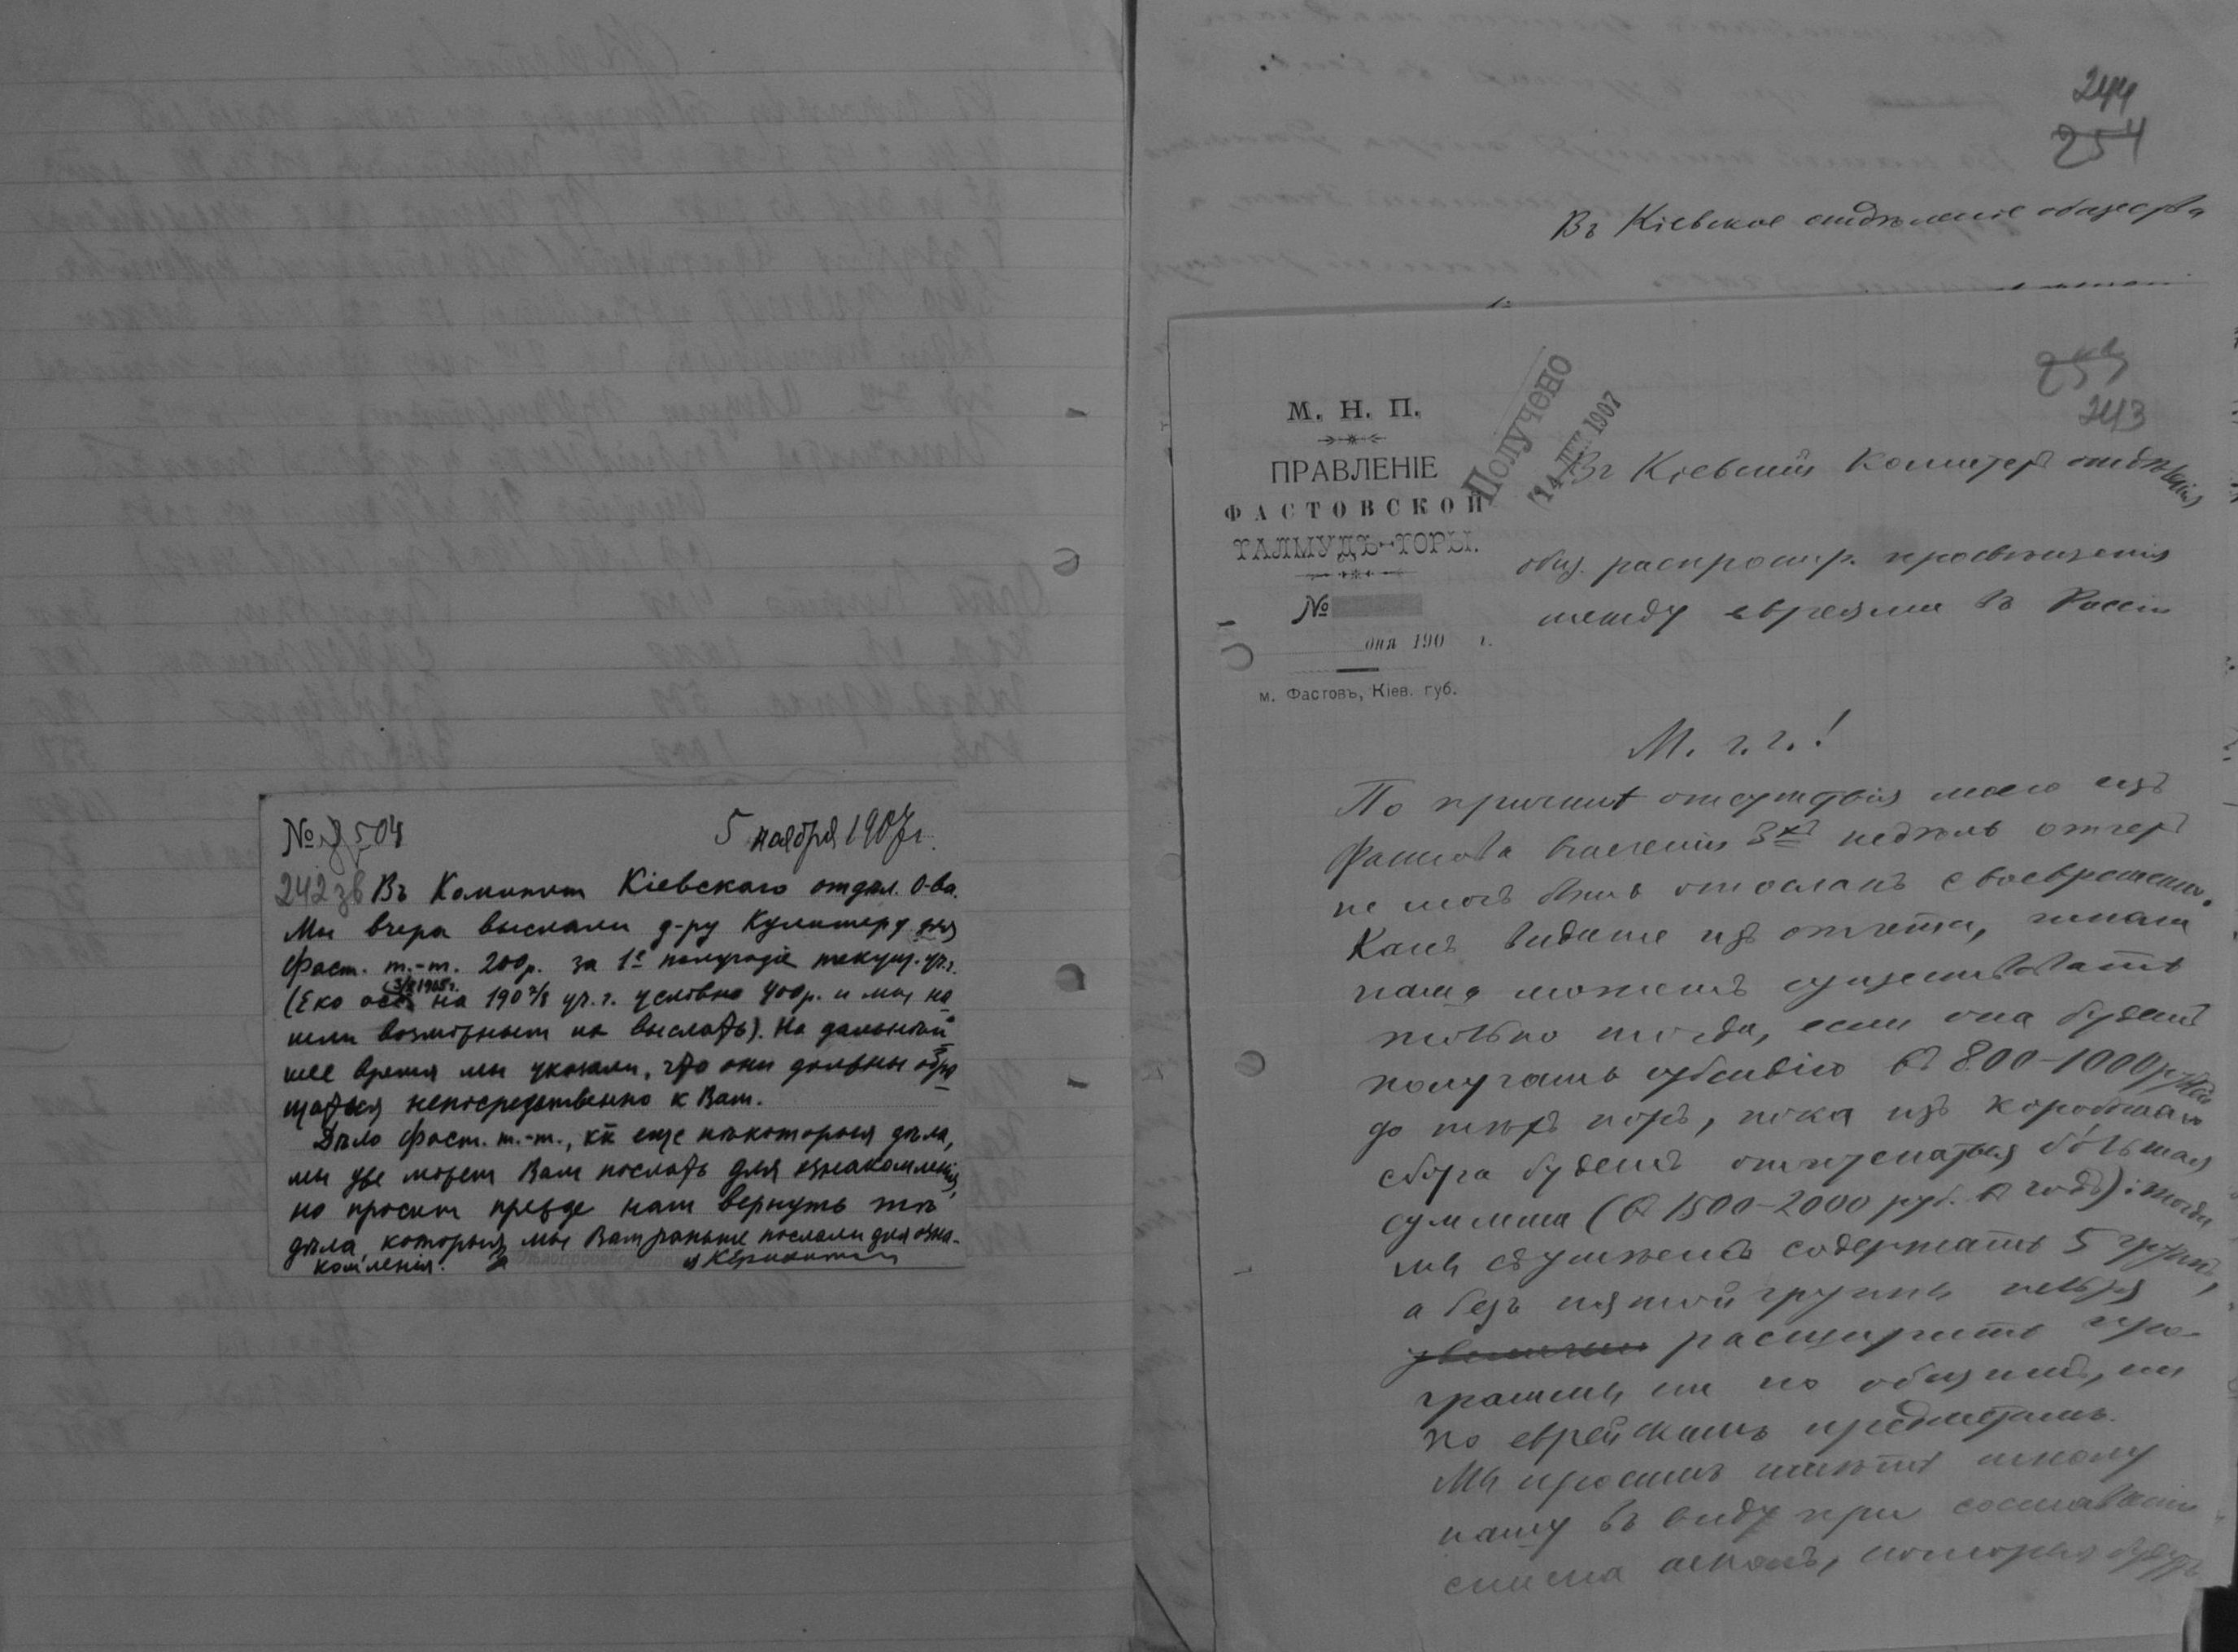 № 8504
5 ноября 1907 г.
242 зв
Въ Комитет Кіевскаго отдѣл. О-ва.
Мы вчера выслали д-ру Кулишеру для
Фаст. т.-т. 200 р. за 1е полугодіе текущ. уч. г.
на 1907/8 уч. г. условно 400 р. и мы на
шли возможным их выслать). На дальнѣй
шее время мы указали, что они должны обра
щаться непосредственно к Вам.
Дѣло Фаст. т.-т., кк еще нѣкоторыя дѣла,
мы уже можем Вам послать для ознакомленія,
но просим прежде нам вернуть тѣ
дѣла, которыя мы Вам раньше послали для озна-
комленія.
244
254
Въ Кіевское отдѣленіе общества
243
М. Н. П.
ПРАВЛЕНІЕ
ФАСТОВСКОЙ
ТАЛМУДЪ-ТОРЫ.
№
дня 190 г.
м. Фастовъ, Кіев. губ.
Получено
14 ДЕК 1907
Въ Кіевскій Комитетъ отдѣленія
общ. распростр. просвѣщенія
между евреями въ Россіи
М. г. г.!
По причинѣ отсутствія моего изъ
Фастова втеченіи 3хъ недѣль отчетъ
не могъ быть отосланъ своевременно.
Какъ видите изъ отчета, школа
наша можетъ существовать
только тогда, если она будетъ
получать субсидію въ 800-1000 рублей
до тѣхъ поръ, пока изъ коробочнаго
сбора будетъ отпускаться бо́льшая
сумма (въ 1500-2000 руб. въ годъ): тогда
мы сумѣемъ содержать 5 группъ,
а безъ пятой группы нельзя
расширить про-
граммы ни по общимъ, ни
по еврейскимъ предметамъ.
Мы просимъ имѣть школу
нашу въ виду при составленіи
списка школъ, которыя будутъ